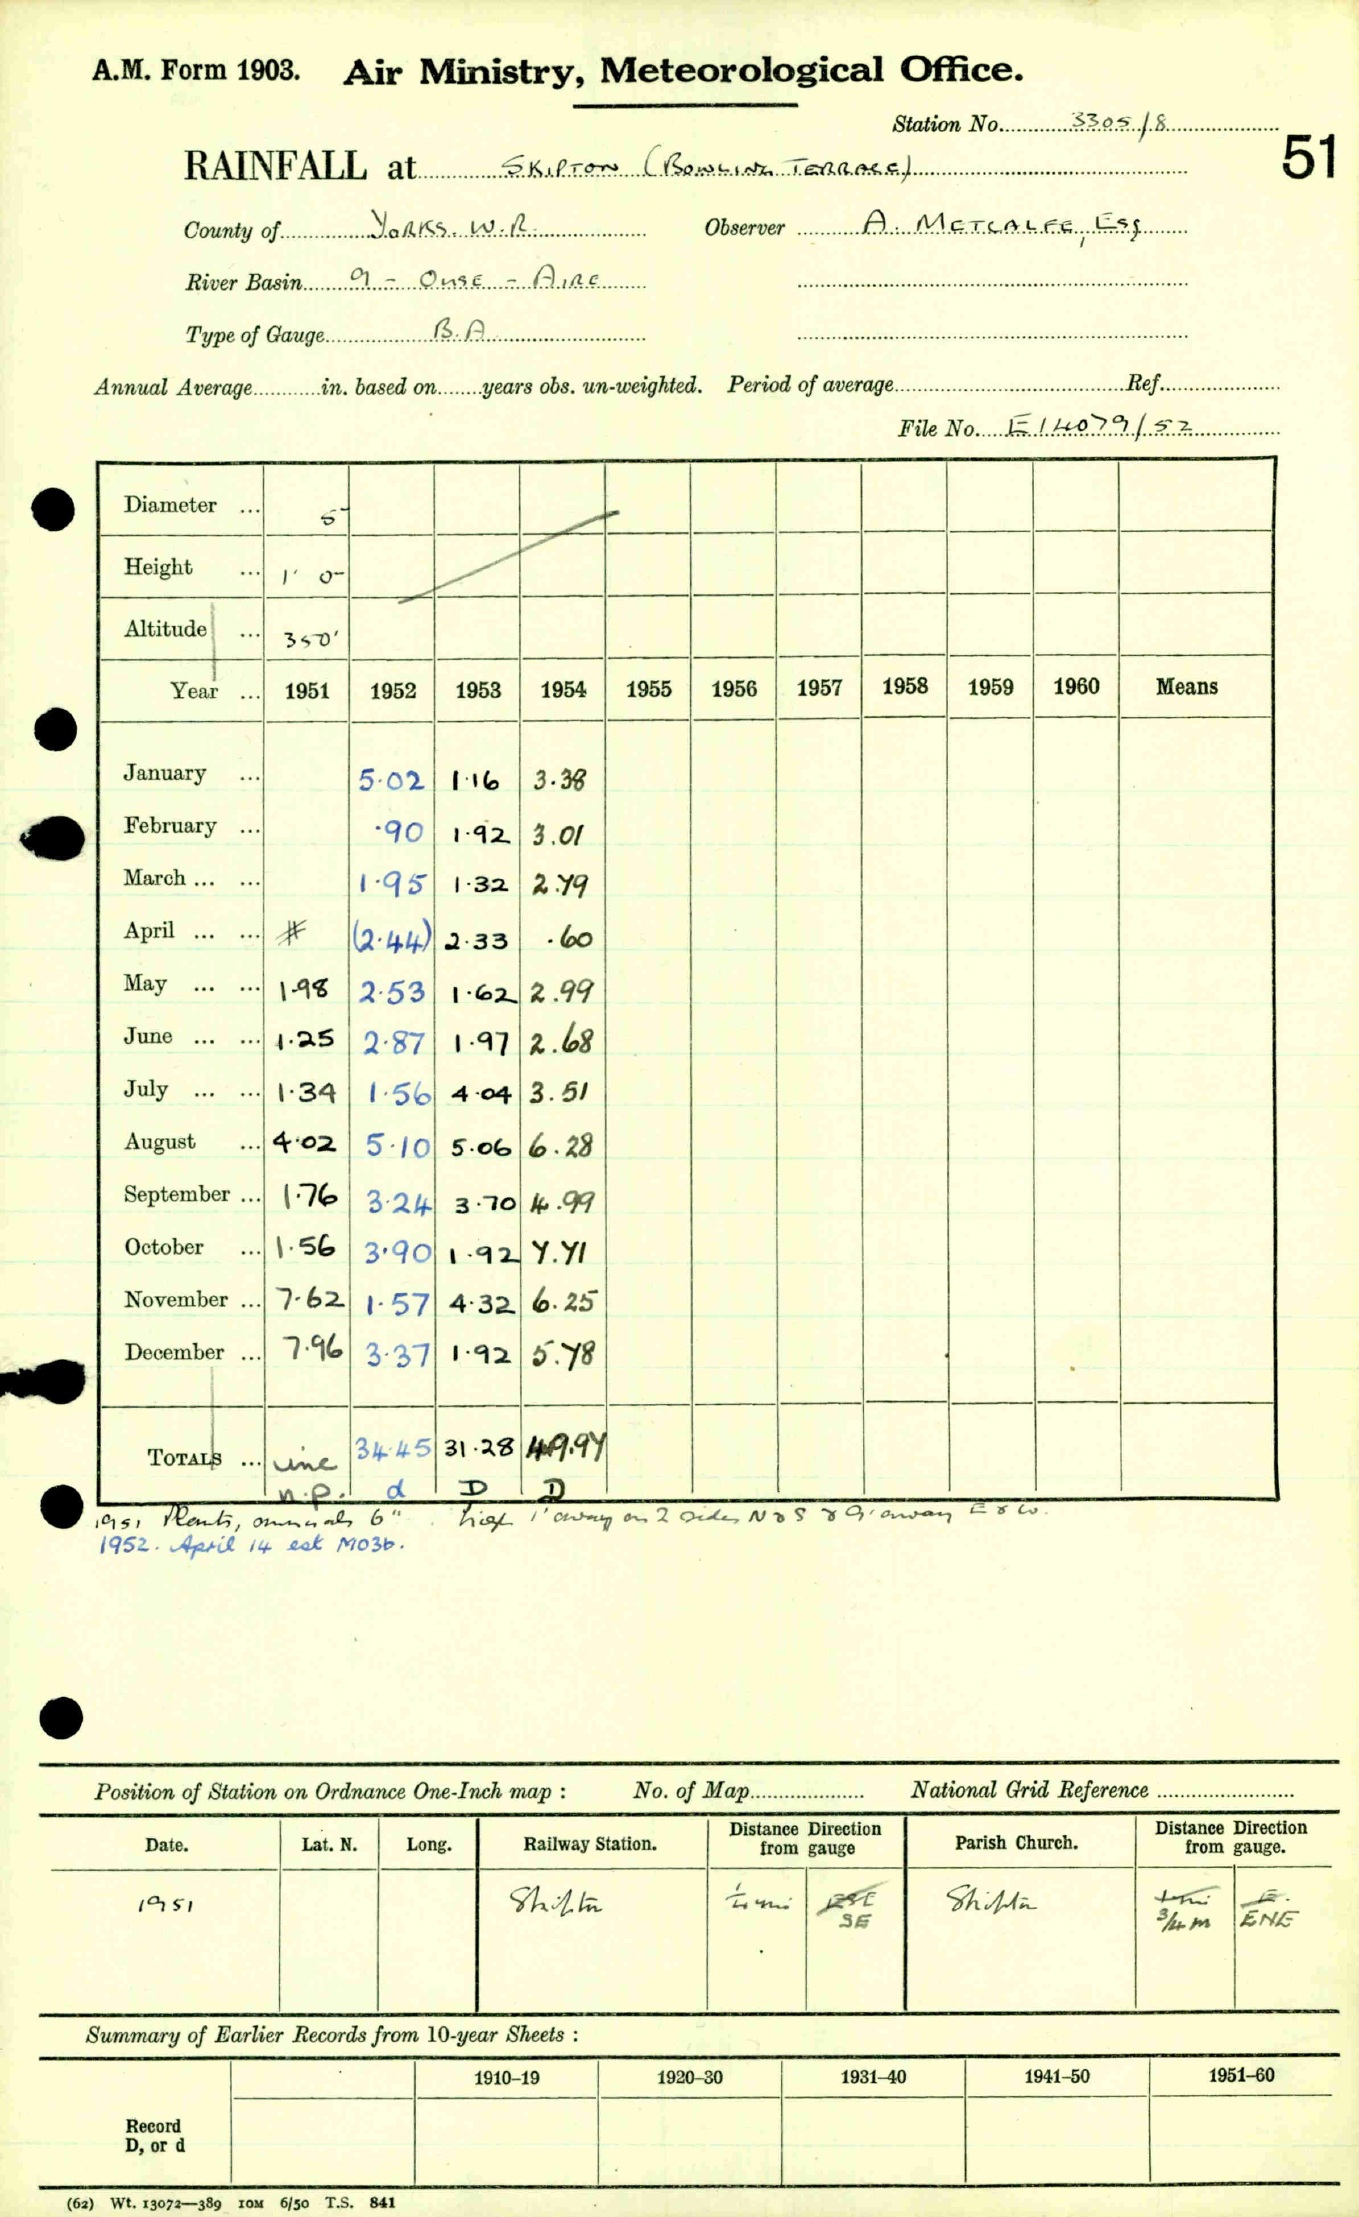 A.M. Form 1903. Air Ministry, Meteorological Office.
Station No. 3305/8
51
RAINFALL at SKIPTON (BOWLING TERRACE)
County of YORKS. W.R. Observer A. METCALFE, Esq
River Basin 9 - OUSE - AIRE
Type of Gauge B.A
Annual Average in. based on years obs. un-weighted. Period of average Ref.
File No. E14079/52
Diameter ... 5
Height ... 1' 0
Altitude ... 350'
Year ... 1951 1952 1953 1954 1955 1956 1957 1958 1959 1960 Means
January ... 5.02 1.16 3.38
February ... .90 1.92 3.01
March ... ... 1.95 1.32 2.79
April ... ... # (2.44) 2.33 .60
May ... ... 1.98 2.53 1.62 2.99
June ... ... 1.25 2.87 1.97 2.68
July ... ... 1.34 1.56 4.04 3.51
August ... 4.02 5.10 5.06 6.28
September ... 1.76 3.24 3.70 4.99
October ... 1.56 3.90 1.92 7.71
November ... 7.62 1.57 4.32 6.25
December ... 7.96 3.37 1.92 5.78
TOTALS ... inc 34.45 31.28 49.97
n.p. d D D
1951 Plants, 6" 1' away on 2 sides N & S & 9' away E & W.
1952. April 14 est MO3b.
Position of Station on Ordnance One-Inch map : No. of Map National Grid Reference
Date. Lat. N. Long. Railway Station. Distance Direction from gauge Parish Church. Distance Direction from gauge.
1951 Skipton mi ESE Skipton E.
SE 3/4 m ENE
Summary of Earlier Records from 10-year Sheets :
1910–19 1920–30 1931–40 1941–50 1951–60
Record
D, or d
(62) Wt. 13072—389 10M 6/50 T.S. 841